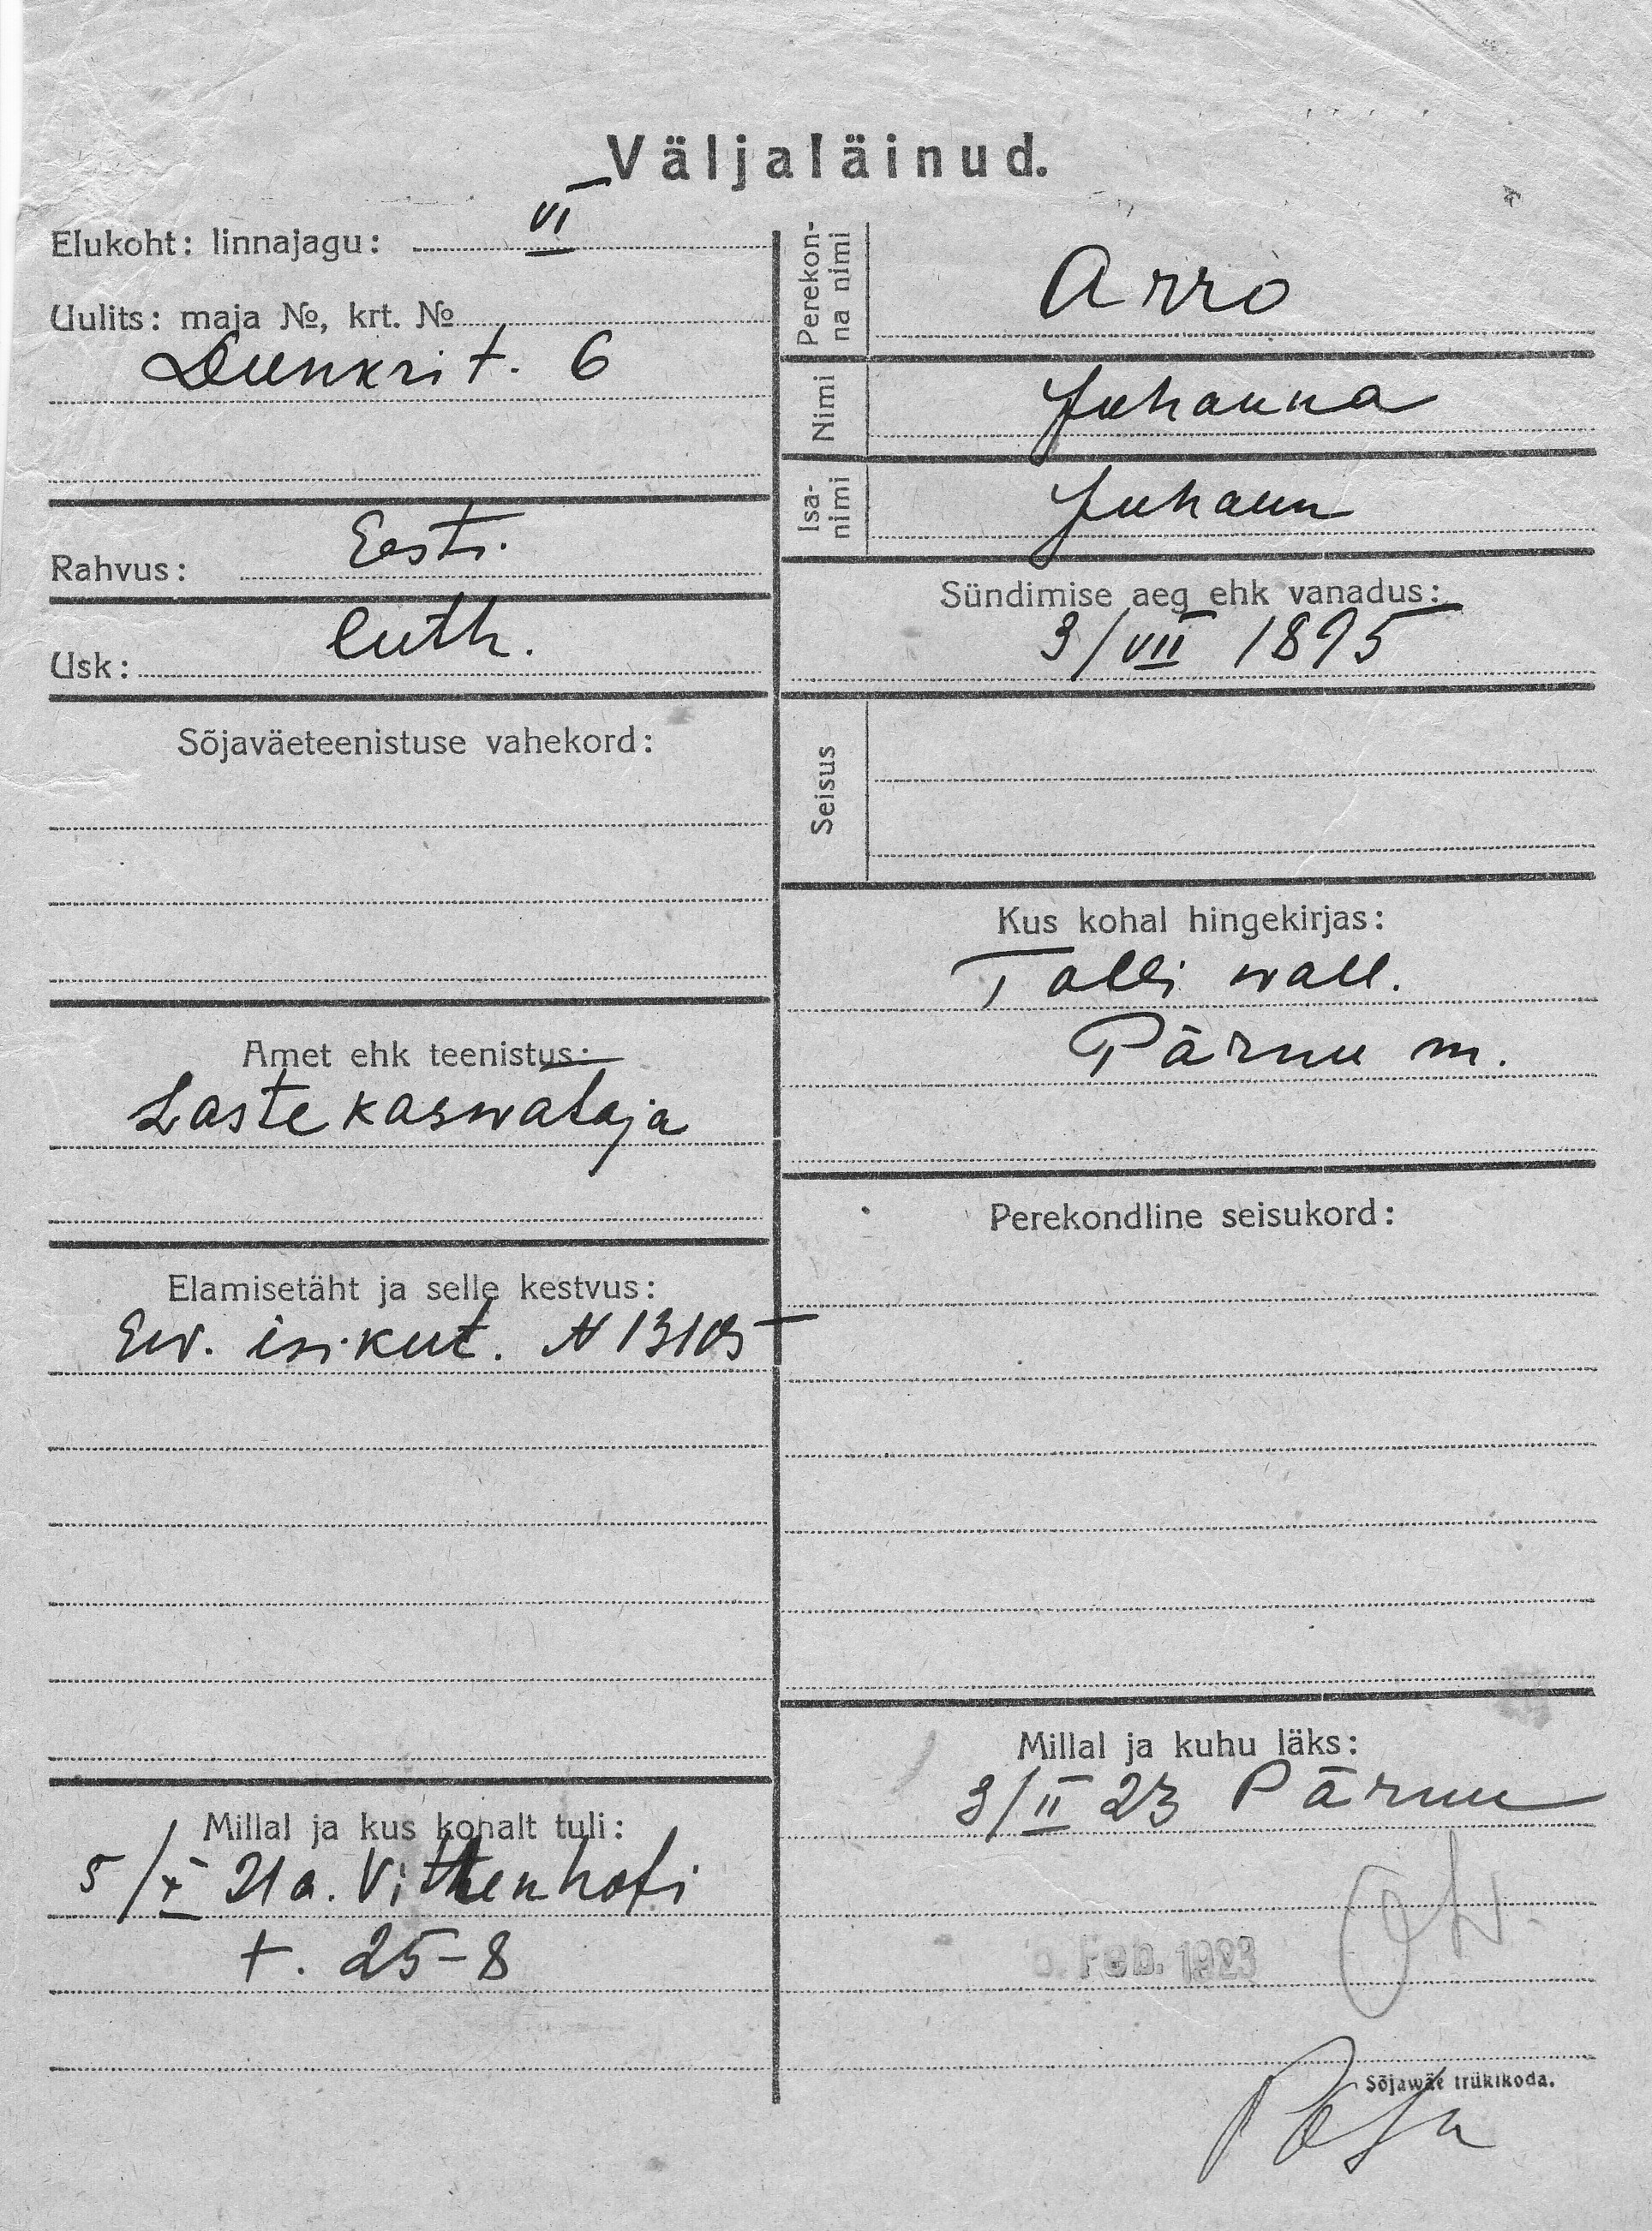 Väljaläinud.
Elukoht: linnajagu: VI
Uulits: maja №, krt. №
Dunkri t. 6
Rahvus: Eesti.
Usk: luth.
Sõjaväeteenistuse vahekord:
Amet ehk teenistus:
Lastekaswataja
Elamisetäht ja selle kestvus:
Ew. isikut. N 13105
Millal ja kus kohalt tuli:
5/X 21 a. Vittenhofi
t. 25-8
Perekon-
na nimi
Arro
Nimi
Juhanna
Isa-
nimi
Juhann
Sündimise aeg ehk vanadus:
3/VII 1895
Seisus
Kus kohal hingekirjas:
Talli wall.
Pärnu m.
Perekondline seisukord:
Millal ja kuhu läks:
3/II 23 Pärnu
Feb. 1923
Sõjawäe trükikoda.